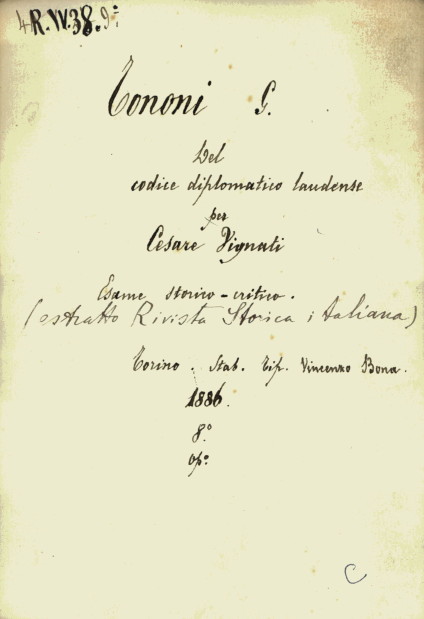 R.VV.38.9:
Tononi G.
Del
codice diplomatico laudense
per
Cesare Vignati
Esame storico-critico.
(estratto Rivista Storica italiana)
Torino. Stab. Tip. Vincenzo Bona.
1886.
8.°
op.°
C